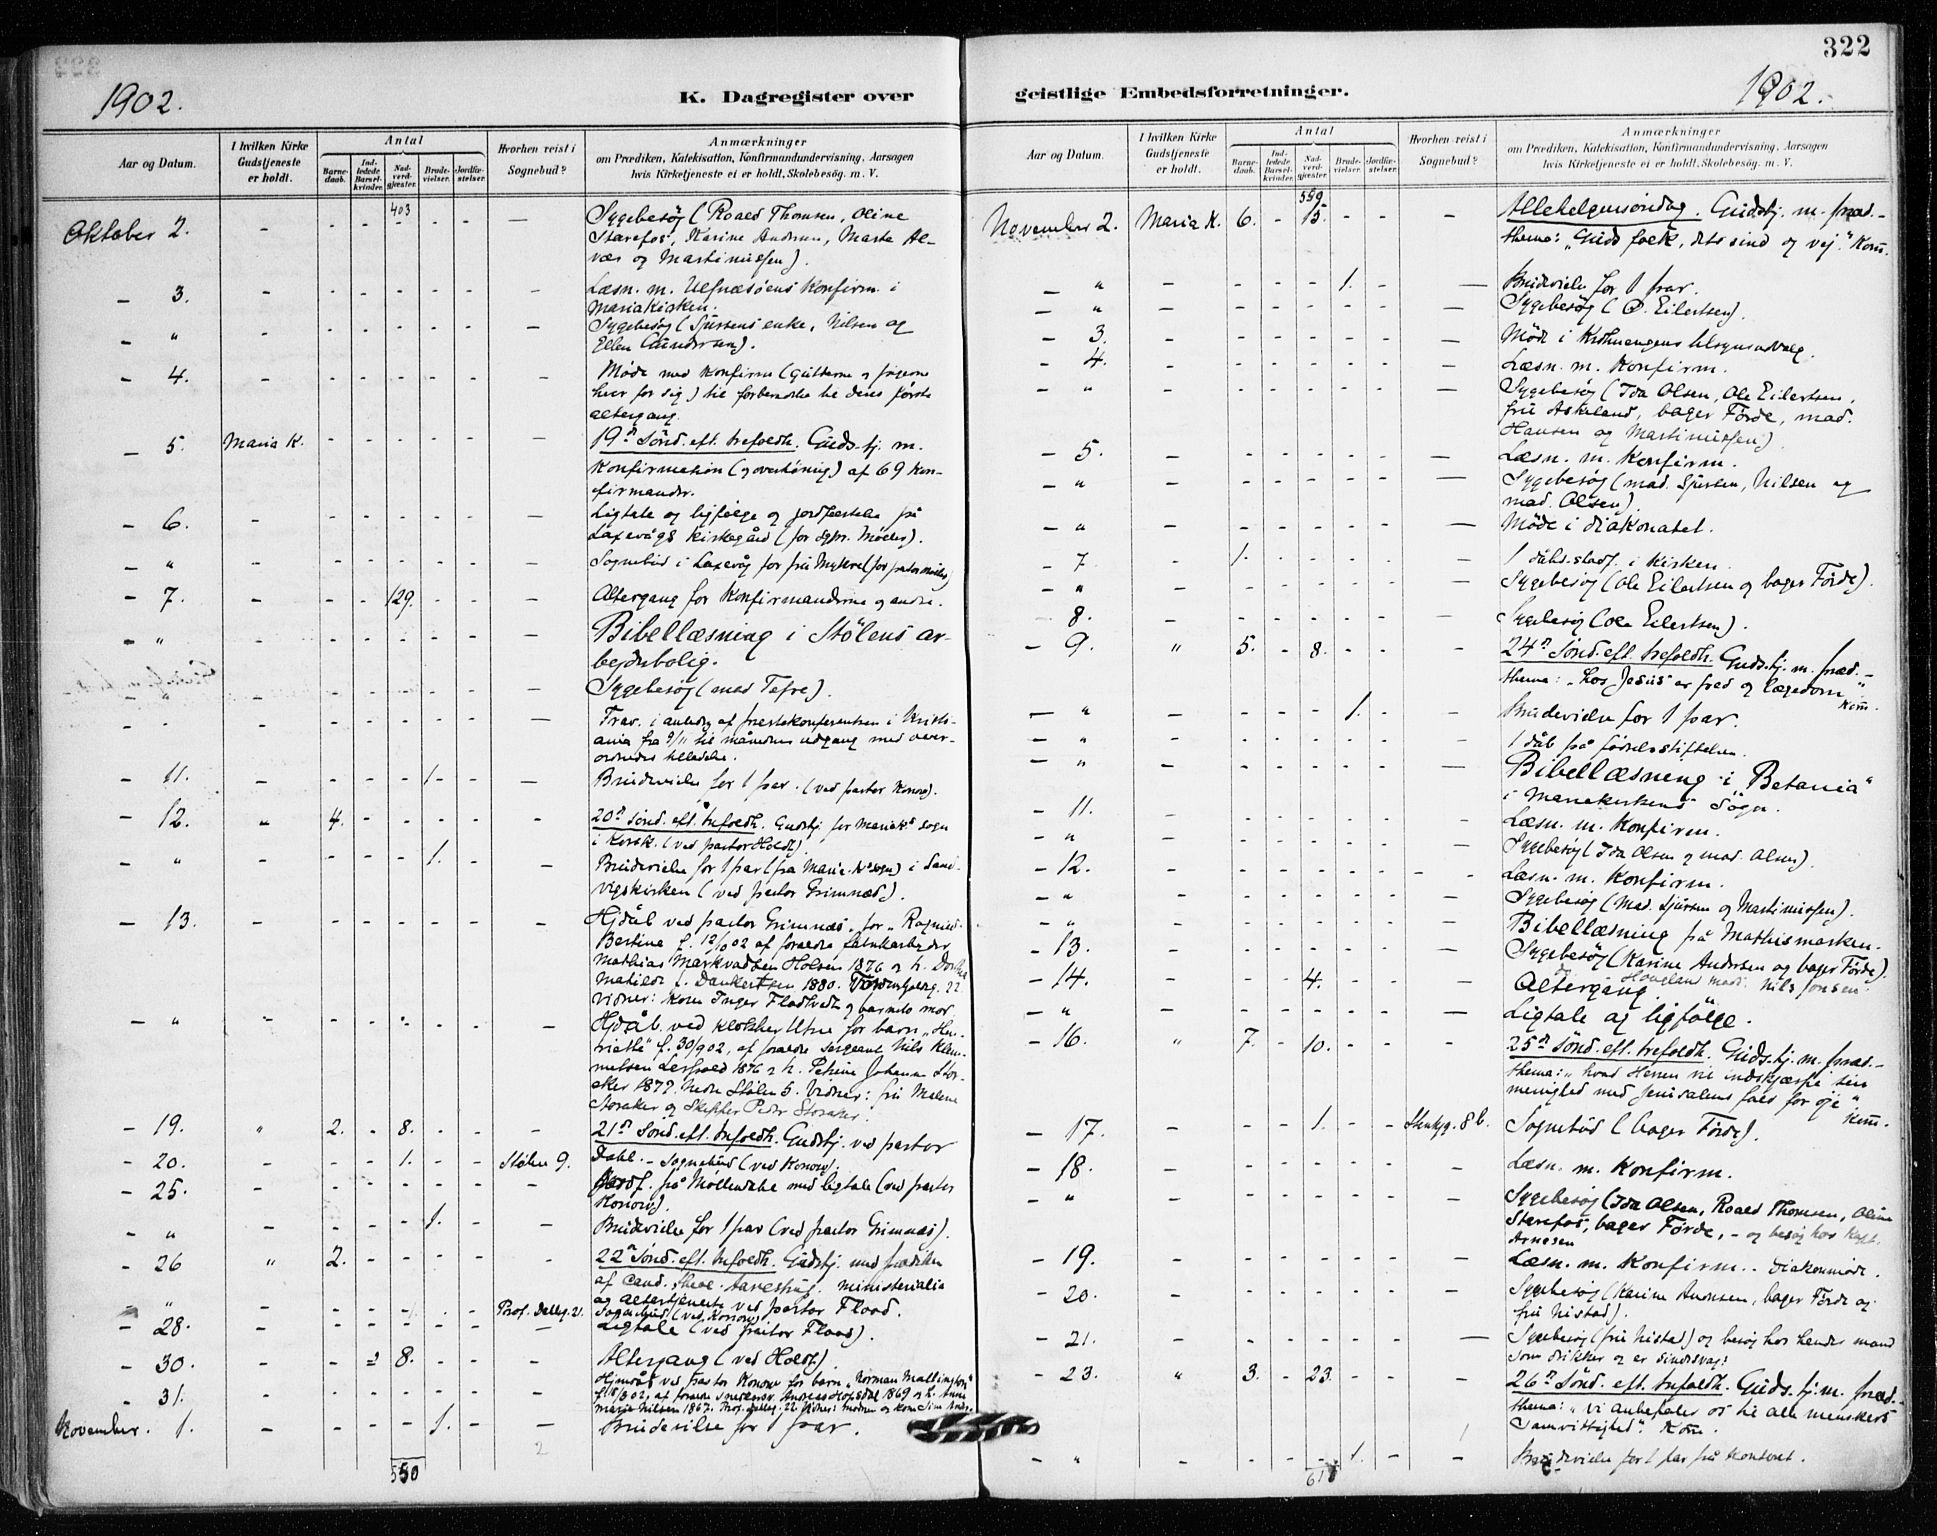 322
1902.
K. Dagregister over
geistlige Embedsforretninger.
1902.
Aar og Datum.
I hvilken Kirke Gudstjeneste er holdt.
Antal
Barne-daab.
Ind-ledede Barsel-kvinder.
Nad-verd-gjæster.
Brude-vielser.
Jordfæ-stelser.
Hvorhen reist i Sognebud?
Anmærkninger
om Prædiken, Katekisation, Konfirmandundervisning, Aarsagen
hvis Kirketjeneste ei er holdt, Skolebesög. m. V.
403
Oktober 2. Sygebesøg (Roald Thomsen, Oline
Starefos, Karine Andersen, Marta Al-
vær og Martinussen).
3. Læsn. m. Ulfnæsøens Konfirm. i
Mariakirken.
" Sygebesøg (Sjursens enke, Nilsen og
Ellen Gundersen).
4. Møde med Konfirm (gutterne og pigerne
hver for sig) til forberedelse til deres første
altergang.
5. Maria K. 19n Sønd. eft. trefoldh. Guds.tj. m.
Konfirmation (og overhøring) af 69 kon-
firmander.
6. Ligtale og ligfølge og jordfæstelse på
Laxevågs kirkegård
" Sognebud i Laxevåg for fru Myhre
7. 129. Altergang for Konfirmanderne og andre.
" Bibellæsning i Stølens ar-
bejderbolig.
" Sygebesøg (mad Tefre).
Frav. i anledn. af præstekonferentsen i Kristi-
ania fra 9/ til månedens udgang med over-
ordnedes tilladelse.
11. 1. Brudevielse for 1 par. (ved pastor Konow).
12. " 4. 20n Sønd. eft. trefoldh. Gudstj. for Mariak's sogn
i Korsk. (ved pastor Holdt).
" 1. Brudevielse for 1 par (fra Maria K's sogn) i Sand-
vigskirken (ved pastor Grimnæs).
13. Hjdåb ved pastor Grimnæs for
Bertine f. 12/ 02 af forældre fabrikarbejder
Mathias Markvadsen Holsen 1876 og h.
Matilde f. Dankertsen 1880. 22.
vidner: Kone Inger og barnets mor
" Hjdåb. ved klokker Utne for barn "Hen-
riette" f. 30/ 902, af forældre sergeant Nils Klem-
metsen 1876 og h. Petrine Johanne Stor-
aker 1877. Nedre Stølen 5. Vidner: fru Malene
Storaker og Skipper Peder Storaker.
19. " 2. 8. 21n Sønd. eft. trefoldh. Gudstj. ved pastor
20. 1. Stølen 9. Dahl. - Sognebud (ved Konow).
25. Jordf. på Møllendal med ligtale (ved pastor
Konow).
" 1. Brudevielse for 1 par (ved pastor Grimnæs).
26 " 2. 22n Sønd. eft. trefoldh. Gudstj. med prædiken
af Cand. theol. ministerialia
og altertjeneste ved pastor Flood.
" Prof. Dallsg. 21. Sognebud (ved Konow)
28. Ligtale (ved pastor Flood).
30. 8. Altergang (ved Holdt).
31. Hjmdåb ved pastor Konow for barn "Norman
902, af forældre Andreas 1869 og h. Anna
Marie Nilsen 1867. Prof. Dallsg. 22
November 1. 1. Brudevielse for 1 par.
550
2
Aar og Datum.
I hvilken Kirke Gudstjeneste er holdt.
Antal
Barne-daab.
Ind-ledede Barsel-kvinder.
Nad-verd-gjæster.
Brude-vielser.
Jordfæ-stelser.
Hvorhen reist i Sognebud?
Anmærkninger
om Prædiken, Katekisation, Konfirmandundervisning, Aarsagen
hvis Kirketjeneste ei er holdt, Skolebesög. m. V.
550
November 2. Maria K. 6. 15. Allehelgensøndag. Gudstj. m. præd. -
thema: "Guds folk, dets sind og vej." Kom.
" 1. Brudevielse for 1 par.
" Sygebesøg (O. Eilertsen).
3. Møde i tilsynsudvalg.
4. Læsn. m. Konfirm.
" Sygebesøg (Ida Olsen, Ole Eilertsen,
fru Askeland, bager Førde, mad.
Hansen og Martinussen).
5. Læsn. m. Konfirm.
" Sygebesøg (mad. Sjursen, Nilsen og
mad. Olsen).
" Møde i diakonatet.
7 1. 1 dåbs.stadf. i kirken.
" Sygebesøg (Ole Eilertsen og bager Førde).
8. Sygebesøg (Ole Eilertsen).
9. " 5. 8. 24n Sønd. eft. trefoldh. Guds.tj. m. præd. -
thema: "hos Jesus er fred og lægedom" Kom.
" 1. Brudevielse for 1 par.
" 1 dåb på fødselsstiftelsen.
" Bibellæsning i "Betania"
i Mariakirkens Sogn.
11. Læsn. m. Konfirm.
" Sygebesøg (Ida Olsen og mad. Olsen).
12. Læsn. m. Konfirm.
" Sygebesøg (Mad. Sjursen og Martinussen).
" Bibellæsning på Mathismarken.
13. Sygebesøg (Karine Andersen og bager Førde).
Hougland mad. Nils Jonsen.
14. 4. Altergang.
" Ligtale og ligfølge.
16. " 7. 10. 25n Sønd. eft. trefoldh. Guds.tj. m. præd. -
thema: "hvad Herren vil indskjærpe sin
menighed med Jerusalems fald for øje" Kom.
17. 1. 8b. Sognebud (bager Førde).
18. Læsn. m. Konfirm.
" Sygebesøg (Ida Olsen, Roald Thomsen, Oline
Starefos, bager Førde, - og besøg hos Kapt.
Arnesen
19. Læsn. m. Konfirm. - Diakonmøde.
20. Sygebesøg (Karine Andersen, bager Førde og
fru Nistad).
21. Sygebesøg (fru Nistad) og besøg hos hendes mand
som drikker og er sindssvag!
23. " 3. 23. 26n Sønd. eft. trefoldh. Guds.tj. m. præd. -
thema: "Vi anbefaler os til alle menskers
samvittighed". Kom.
" 1. Brudevielse for 1 par på kontoret.